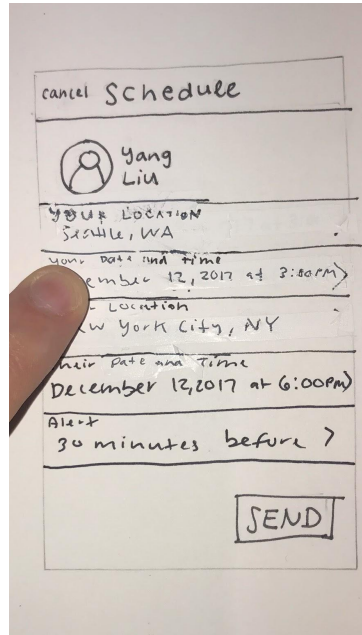 cancel Schedule
Yang
Liu
YOUR LOCATION
Seattle, WA
Your Date and Time
ember 12, 2017 at 3:00PM >
Location
w York City, NY
heir Date and Time
December 12, 2017 at 6:00PM >
Alert
30 minutes before >
SEND